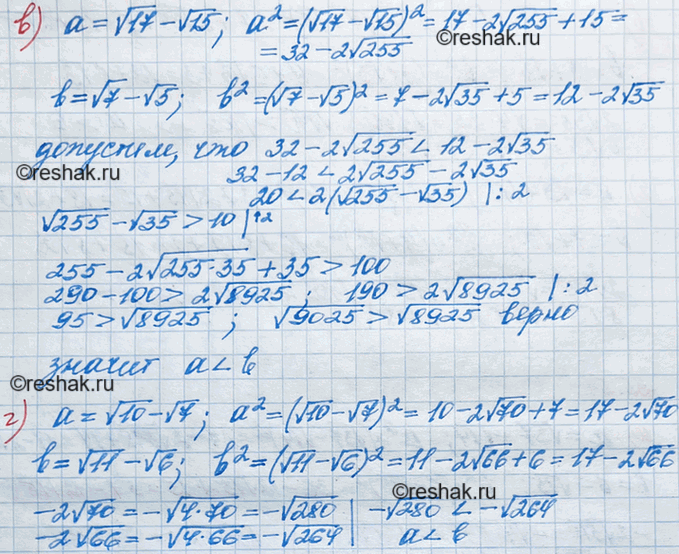 в) a = √17 - √15; a² = (√17 - √15)² = 17 - 2√255 + 15 =
= 32 - 2√255
b = √7 - √5; b² = (√7 - √5)² = 7 - 2√35 + 5 = 12 - 2√35
допустим, что 32 - 2√255 < 12 - 2√35
©reshak.ru
32 - 12 < 2√255 - 2√35
20 < 2(√255 - √35) | : 2
©reshak.ru
√255 - √35 > 10 |↑2
255 - 2√255·35 + 35 > 100
290 - 100 > 2√8925; 190 > 2√8925 | : 2
95 > √8925; √9025 > √8925 верно
значит a < b
©reshak.ru
©reshak.ru
г) a = √10 - √7; a² = (√10 - √7)² = 10 - 2√70 + 7 = 17 - 2√70
b = √11 - √6; b² = (√11 - √6)² = 11 - 2√66 + 6 = 17 - 2√66
©reshak.ru
-2√70 = -√4·70 = -√280 | -√280 < -√264
-2√66 = -√4·66 = -√264 | a < b